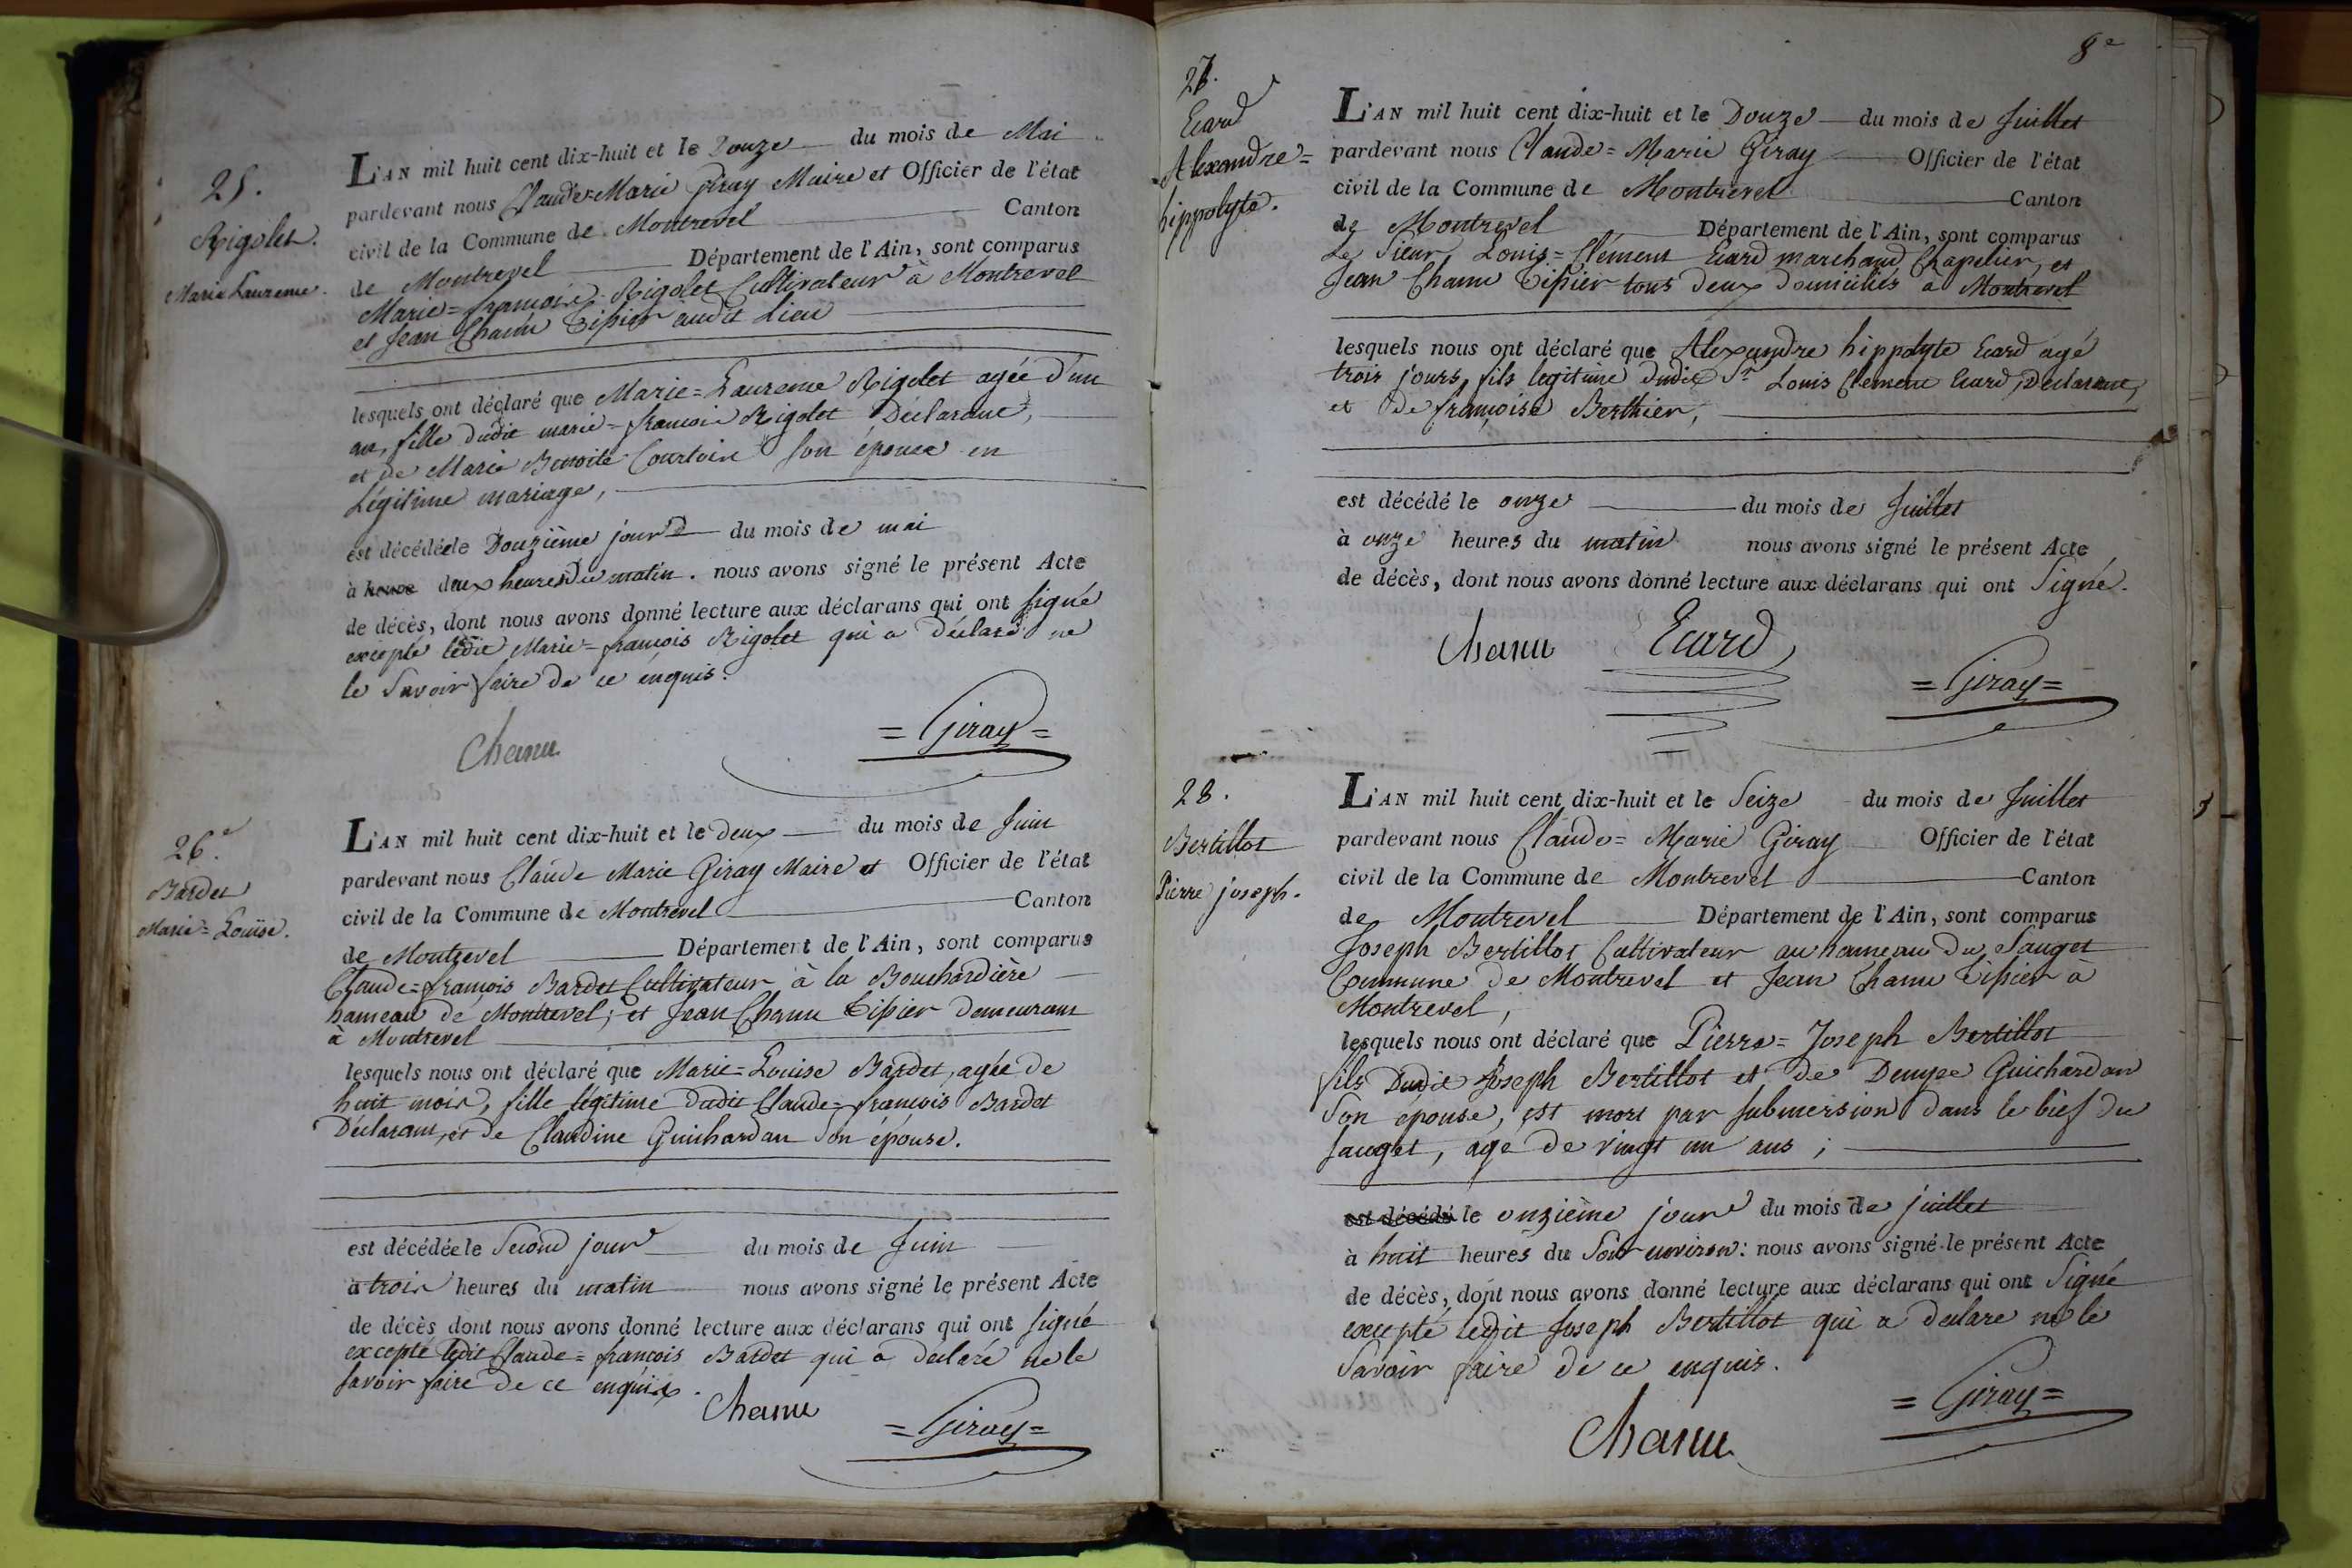 25.
Rigolet.
Marie Laurence.
L'AN mil huit cent dix-huit et le Douze du mois de Mai
pardevant nous Claude=Marie Giray Maire et Officier de l'état
civil de la Commune de Montrevel Canton
de Montrevel Département de l'Ain, sont comparus
Marie=françois Rigolet Cultivateur à Montrevel
et Jean Chanu Tissier audit Lieu
lesquels ont déclaré que Marie=Laurence Rigolet agée d'un
an, fille dudit marie=françois Rigolet Déclarant,
et de Marie Benoite Courtois son épouse en
Légitime mariage,
est décédée le Douzième jour du mois de mai
à deux heures du matin. nous avons signé le présent Acte
de décès, dont nous avons donné lecture aux déclarans qui ont signé
excepté ledit Marie=françois Rigolet qui a déclaré ne
le Savoir faire de ce enquis.
Chanu
=Giray=
26e.
Bardet
Marie=Louise.
L'AN mil huit cent dix-huit et le deux du mois de Juin
pardevant nous Claude Marie Giray Maire et Officier de l'état
civil de la Commune de Montrevel Canton
de Montrevel Département de l'Ain, sont comparus
Claude=françois Bardet Cultivateur à la Bouchardière
hameau de Montrevel; et Jean Chanu Tissier demeurant
à Montrevel
lesquels nous ont déclaré que Marie=Louise Bardet, agée de
huit mois, fille légitime dudit Claude=françois Bardet
Déclarant, et de Claudine Guichardan Son épouse.
est décédée le Second jour du mois de Juin
à trois heures du matin nous avons signé le présent Acte
de décès dont nous avons donné lecture aux déclarans qui ont signé
excepté ledit Claude=françois Bardet qui a declaré ne le
savoir faire de ce enquis.
Chanu
=Giray=
8e
27.
Ecard
Alexandre=
hippolyte.
L'AN mil huit cent dix-huit et le Douze du mois de Juillet
pardevant nous Claude=Marie Giray Officier de l'état
civil de la Commune de Montrevel Canton
de Montrevel Département de l'Ain, sont comparus
Le Sieur Louis=Clément Ecard marchand Chapelier, et
Jean Chanu Tissier tous deux domiciliés à Montrevel
lesquels nous ont déclaré que Alexandre hippolyte Ecard agé
trois jours, fils legitime dudit Sr Louis Clement Ecard, Déclarant,
et de françoise Berthier,
est décédé le onze du mois de Juillet
à onze heures du matin nous avons signé le présent Acte
de décès, dont nous avons donné lecture aux déclarans qui ont Signé.
Chanu Ecard
=Giray=
28.
Bertillot
Pierre joseph.
L'AN mil huit cent dix-huit et le Seize du mois de Juillet
pardevant nous Claude=Marie Giray Officier de l'état
civil de la Commune de Montrevel Canton
de Montrevel Département de l'Ain, sont comparus
Joseph Bertillot Cultivateur au hameau du Sauget
Commune de Montrevel et Jean Chanu Tissier à
Montrevel,
lesquels nous ont déclaré que Pierre=Joseph Bertillot
fils Dudit Joseph Bertillot et de Denyse Guichardan
Son épouse, est mort par submersion dans le bief du
sauget, age de vingt un ans;
est décédé le onzième jour du mois de juillet
à huit heures du Soir environ: nous avons signé le présent Acte
de décès, dont nous avons donné lecture aux déclarans qui ont Signé
excepté ledit Joseph Bertillot qui a declare ne le
Savoir faire de ce enquis.
Chanu
=Giray=